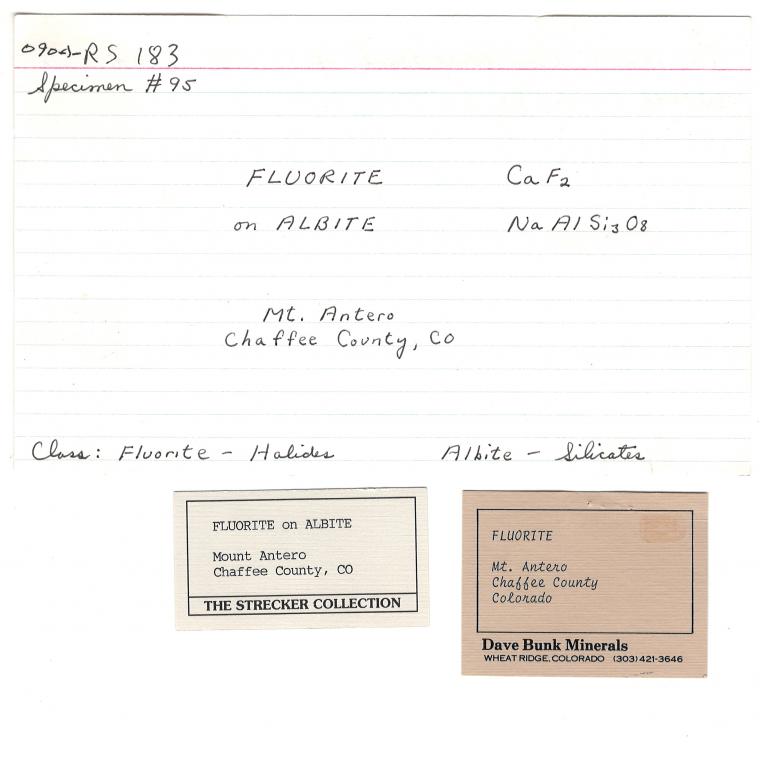 RS 183
Specimen #95
FLUORITE CaF₂
on ALBITE NaAlSi₃O₈
Mt. Antero
Chaffee County, CO
Class: Fluorite - Halides Albite - Silicates
FLUORITE on ALBITE
Mount Antero
Chaffee County, CO
THE STRECKER COLLECTION
FLUORITE
Mt. Antero
Chaffee County
Colorado
Dave Bunk Minerals
WHEAT RIDGE, COLORADO (303) 421-3646